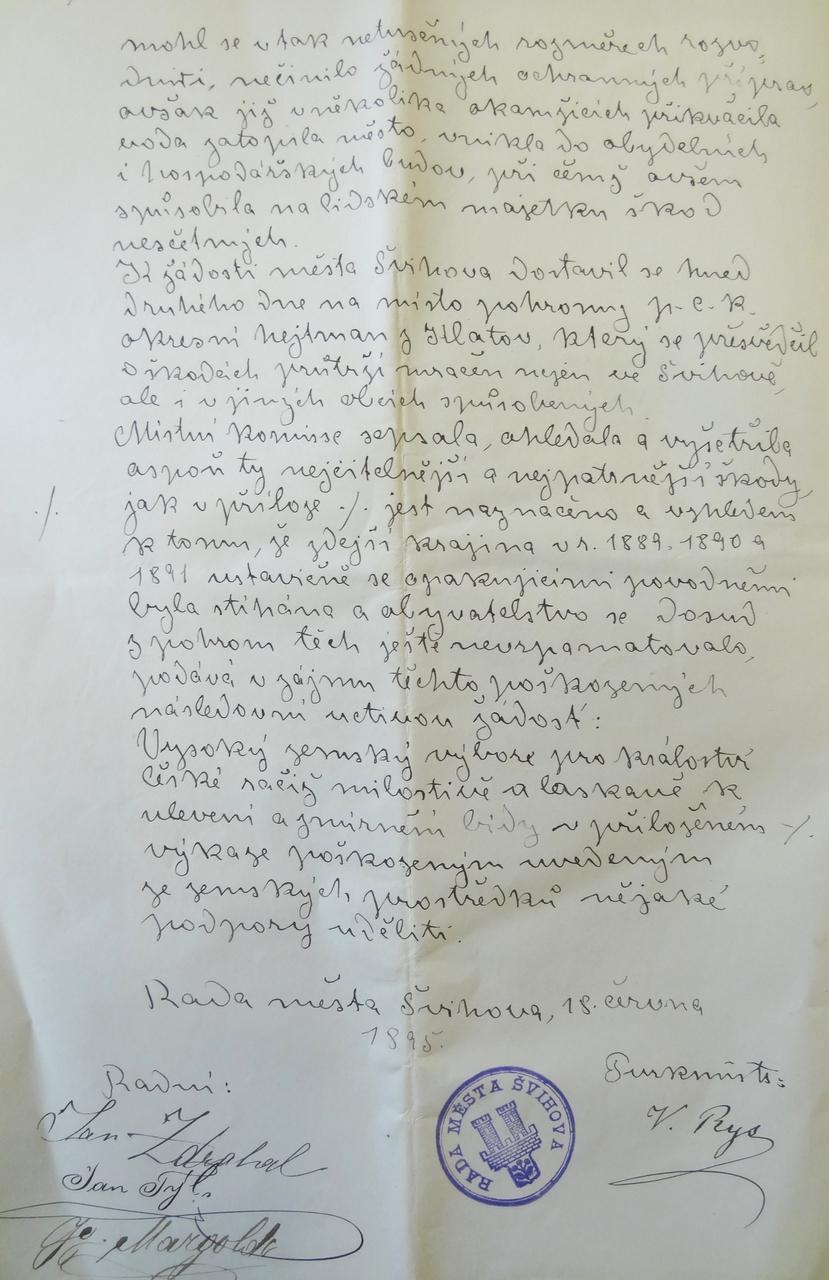 mohl se v tak netušených rozměrech rozvo-
dniti, nečinilo žádných ochranných příprav,
avšak již v několika okamžicích přikvačila
voda zatopila město, vnikla do obydelních
i hospodářských budov, při čemž ovšem
způsobila na lidském majetku škod
nesčetných.
K žádosti města Švihova dostavil se hned
druhého dne na místo pohromy p. c. k.
okresní hejtman z Klatov, který se přesvědčil
o škodách průtrží mračen nejen ve Švihově,
ale i v jiných obcích způsobených.
Místní komisse sepsala, ohledala a vyšetřila
aspoň ty nejcitelnější a nejpatrnější škody,
./. jak v příloze ./. jest naznačeno a vzhledem
k tomu, že zdejší krajina v r. 1889, 1890 a
1891 ustavičně se opakujícími povodněmi
byla stíhána a obyvatelstvo se dosud
z pohrom těch ještě nevzpamatovalo,
podává v zájmu těchto poškozených
následovní uctivou žádost:
Vysoký zemský výbore pro království
české račiž milostivě a laskavě k
ulevení a zmírnění bídy v přiloženém ./.
výkaze poškozeným uvedeným
ze zemských prostředků nějaké
podpory uděliti.
Rada města Švihova, 18. června
1895.
Radní: Purkmistr:
Jan Zdrahal V. Rys
Jan Týl
Margold
RADA MĚSTA ŠVIHOVA